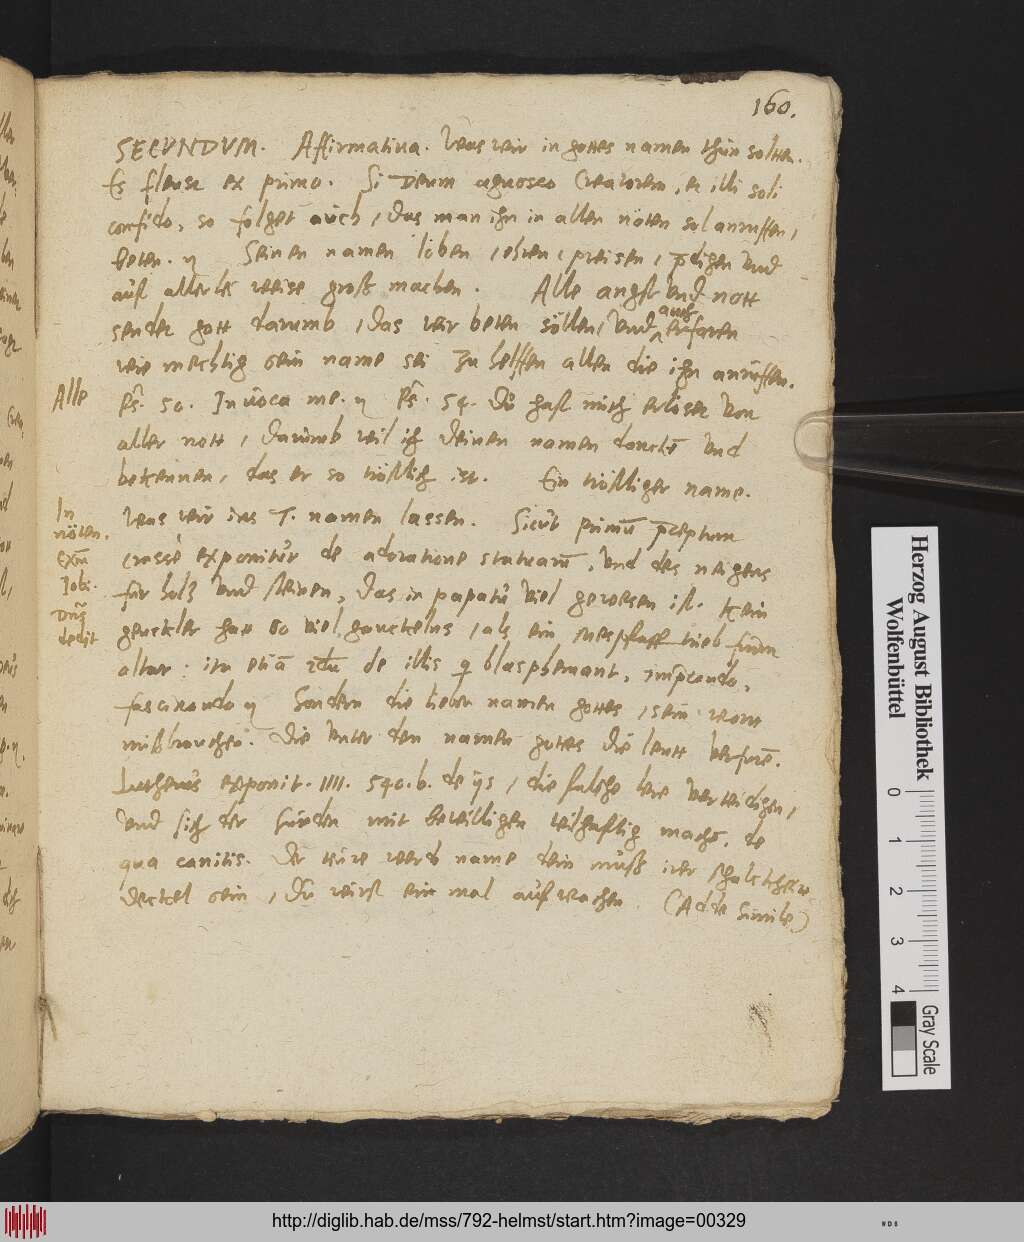 160.
SECUNDUM. Affirmativa. Was wir in gottes namen thun solten.
Es fleust ex primo. Si Deum agnosco Creatorem, et illi soli
confido, so folget auch, das man ihn in allen nöten sol anruffen,
beten. Seinen namen loben, ehren, preisen, pdigen und
auff allerlei weise groß machen. Alle angst und nott
sendet gott darumb, das wir beten söllen, und auch erfaren
wie mechtig sein name sei zu helffen allen die ihn anruffen.
Alle
Ps. 50. Invoca me. Ps. 54. Du hast mich erlöset von
aller nott, darumb wil ich deinen namen dancken und
bekennen, das er so tröstlich ist. Ein tröstlicher name.
In
nöten.
exm
Jobi.
Dns
dedit
Was wir ins T. namen lassen. Sicut primu pceptum
crasse exponitur de adoratione statuaru, und des neigens
für holtz und steinen, das in papatu viel gewesen ist. Kein
geuckler hatt so viel gauckelns, als ein mespfaff trieb
altar: ita etia 2du de illis q blasphemant,
fascinando Sondern die lieber namen gottes, sein wortt
mißbrauchen. Die unter den namen gottes die leutt verfüre.
Lutherus exponit. IIII. 540. b. de iis, die falsche lere verteidigen,
und sich der sünden mit bewilligen teilhafftig machen. de
qua canitis. Der name dein muß irer schalckheit
deckel sein, Du wirst ein mal auffwachen. (Adde simile)
Herzog August Bibliothek
Wolfenbüttel
0 1 2 3 4
Gray Scale
http://diglib.hab.de/mss/792-helmst/start.htm?image=00329